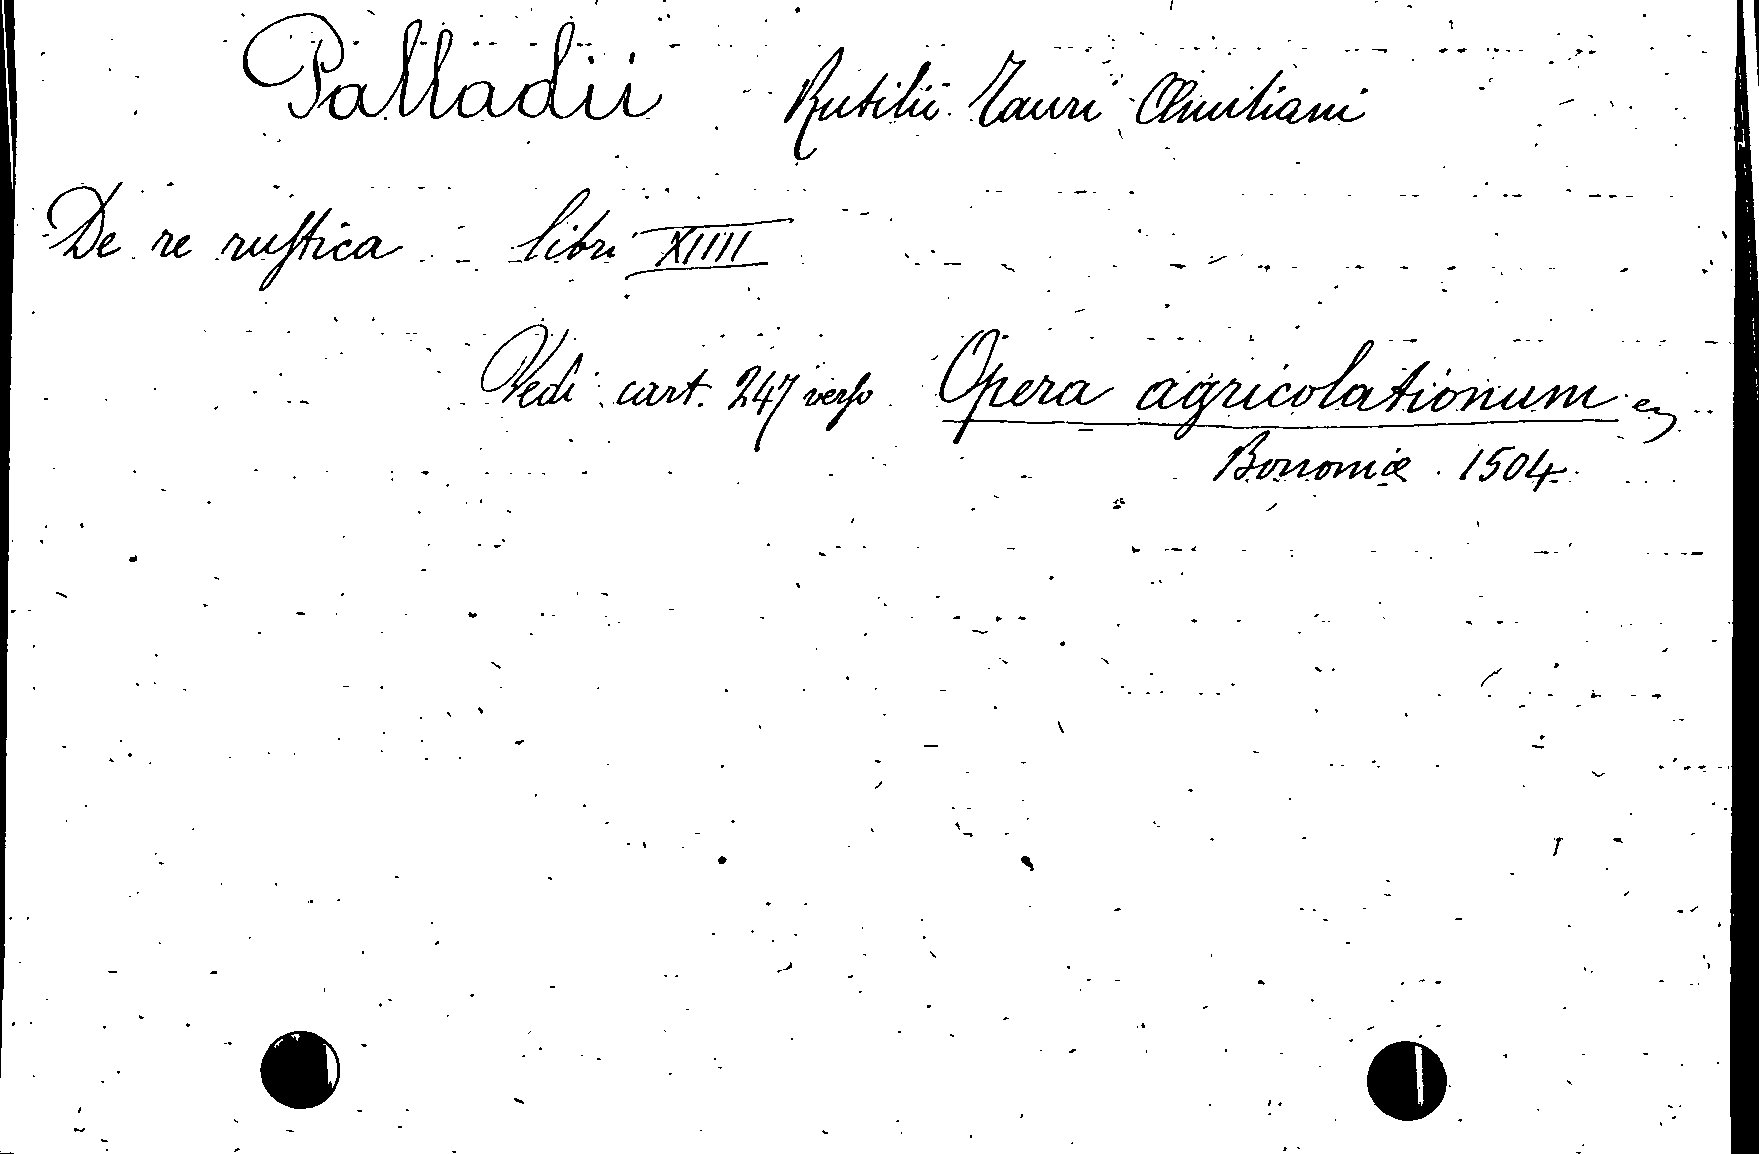 Palladii Rutilii Tauri Æmiliani
De re rustica libri XIIII
Vedi cart. 247 verso Opera agricolationum
Bononiæ 1504